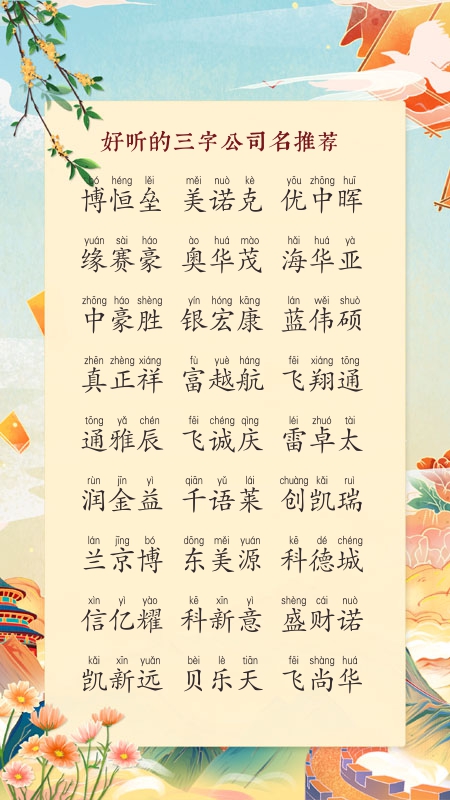 好听的三字公司名推荐
bó héng lěi měi nuò kè yōu zhōng huī
博恒垒 美诺克 优中晖
yuán sài háo ào huá mào hǎi huá yà
缘赛豪 奥华茂 海华亚
zhōng háo shèng yín hóng kāng lán wěi shuò
中豪胜 银宏康 蓝伟硕
zhēn zhèng xiáng fù yuè háng fēi xiáng tōng
真正祥 富越航 飞翔通
tōng yǎ chén fēi chéng qìng léi zhuó tài
通雅辰 飞诚庆 雷卓太
rùn jīn yì qiān yǔ lái chuàng kǎi ruì
润金益 千语莱 创凯瑞
lán jīng bó dōng měi yuán kē dé chéng
兰京博 东美源 科德城
xìn yì yào kē xīn yì shèng cái nuò
信亿耀 科新意 盛财诺
kǎi xīn yuǎn bèi lè tiān fēi shàng huá
凯新远 贝乐天 飞尚华